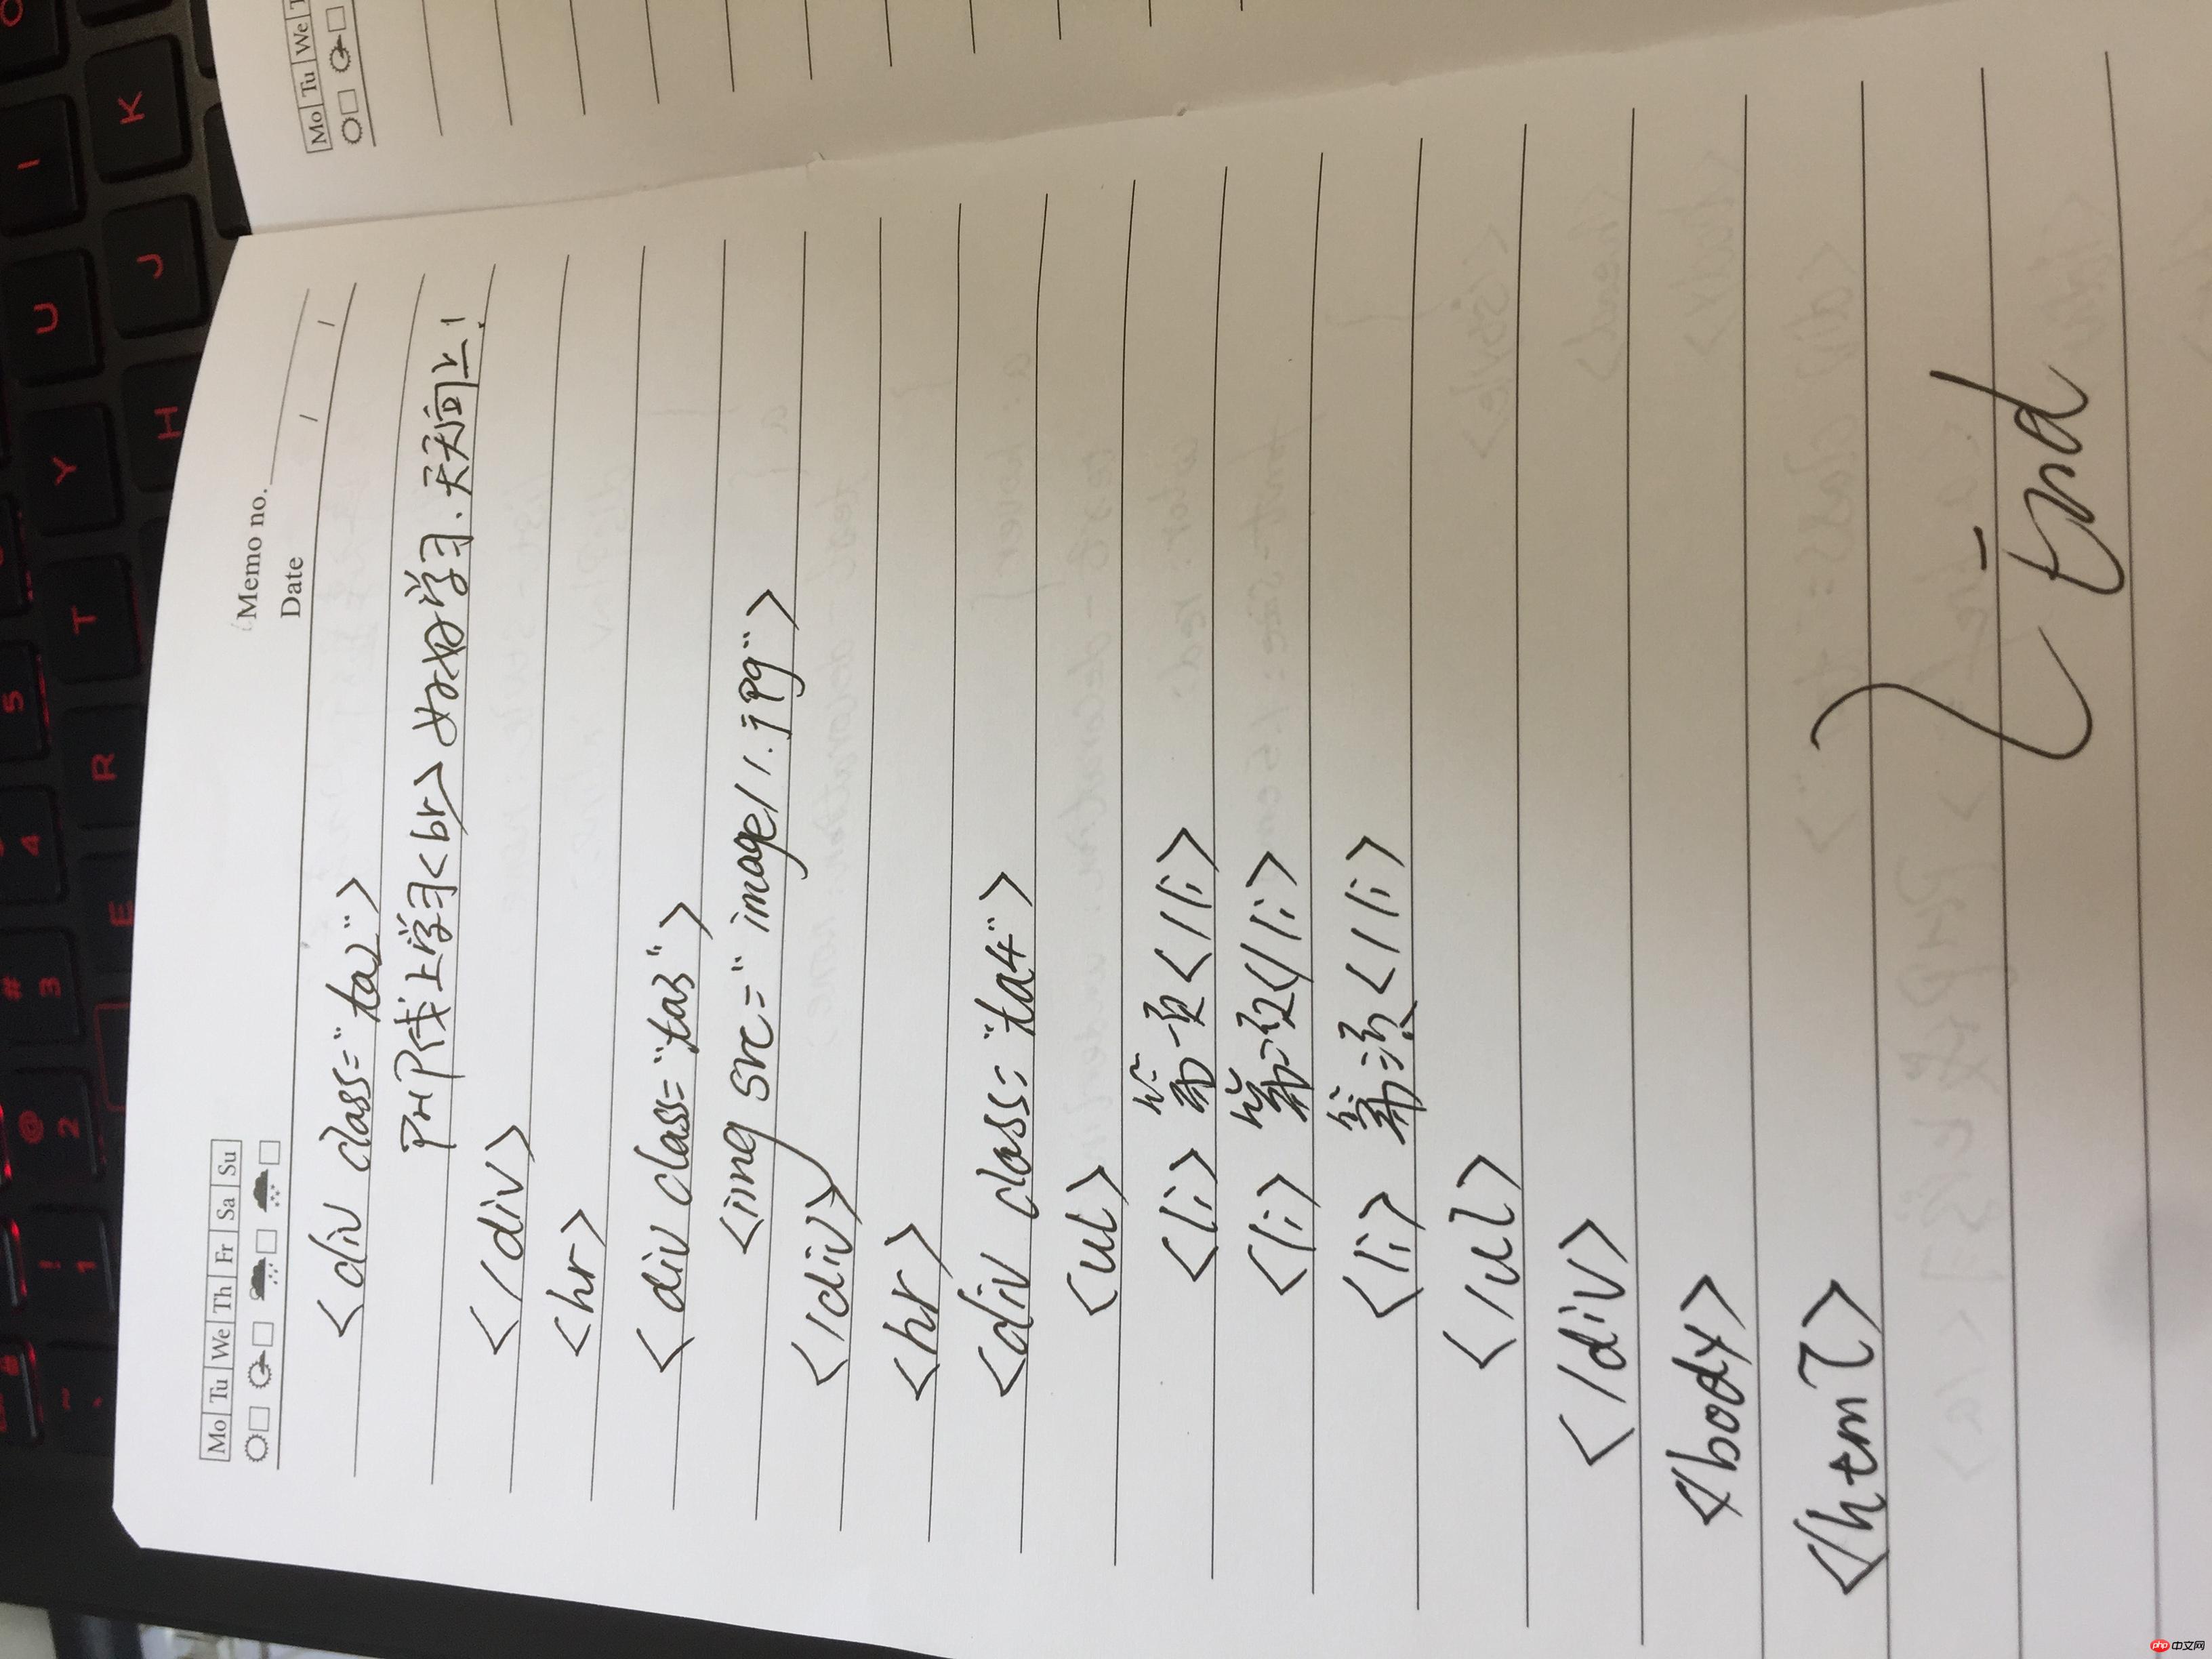 Mo Tu We Th Fr Sa Su
Memo no.
Date / /
<div class="ta2">
PHP线上学习<br> 好好学习.天天向上!
</div>
<hr>
<div class="ta3">
<img src="image/1.jpg">
</div>
<hr>
<div class="ta4">
<ul>
<li> 第一项</li>
<li> 第二项</li>
<li> 第三项</li>
</ul>
</div>
</body>
</html>
End
Mo Tu We
K
I
J
U
H
Y
T
5
R
4
E
# 3
@ 2
! 1
~
php 中文网